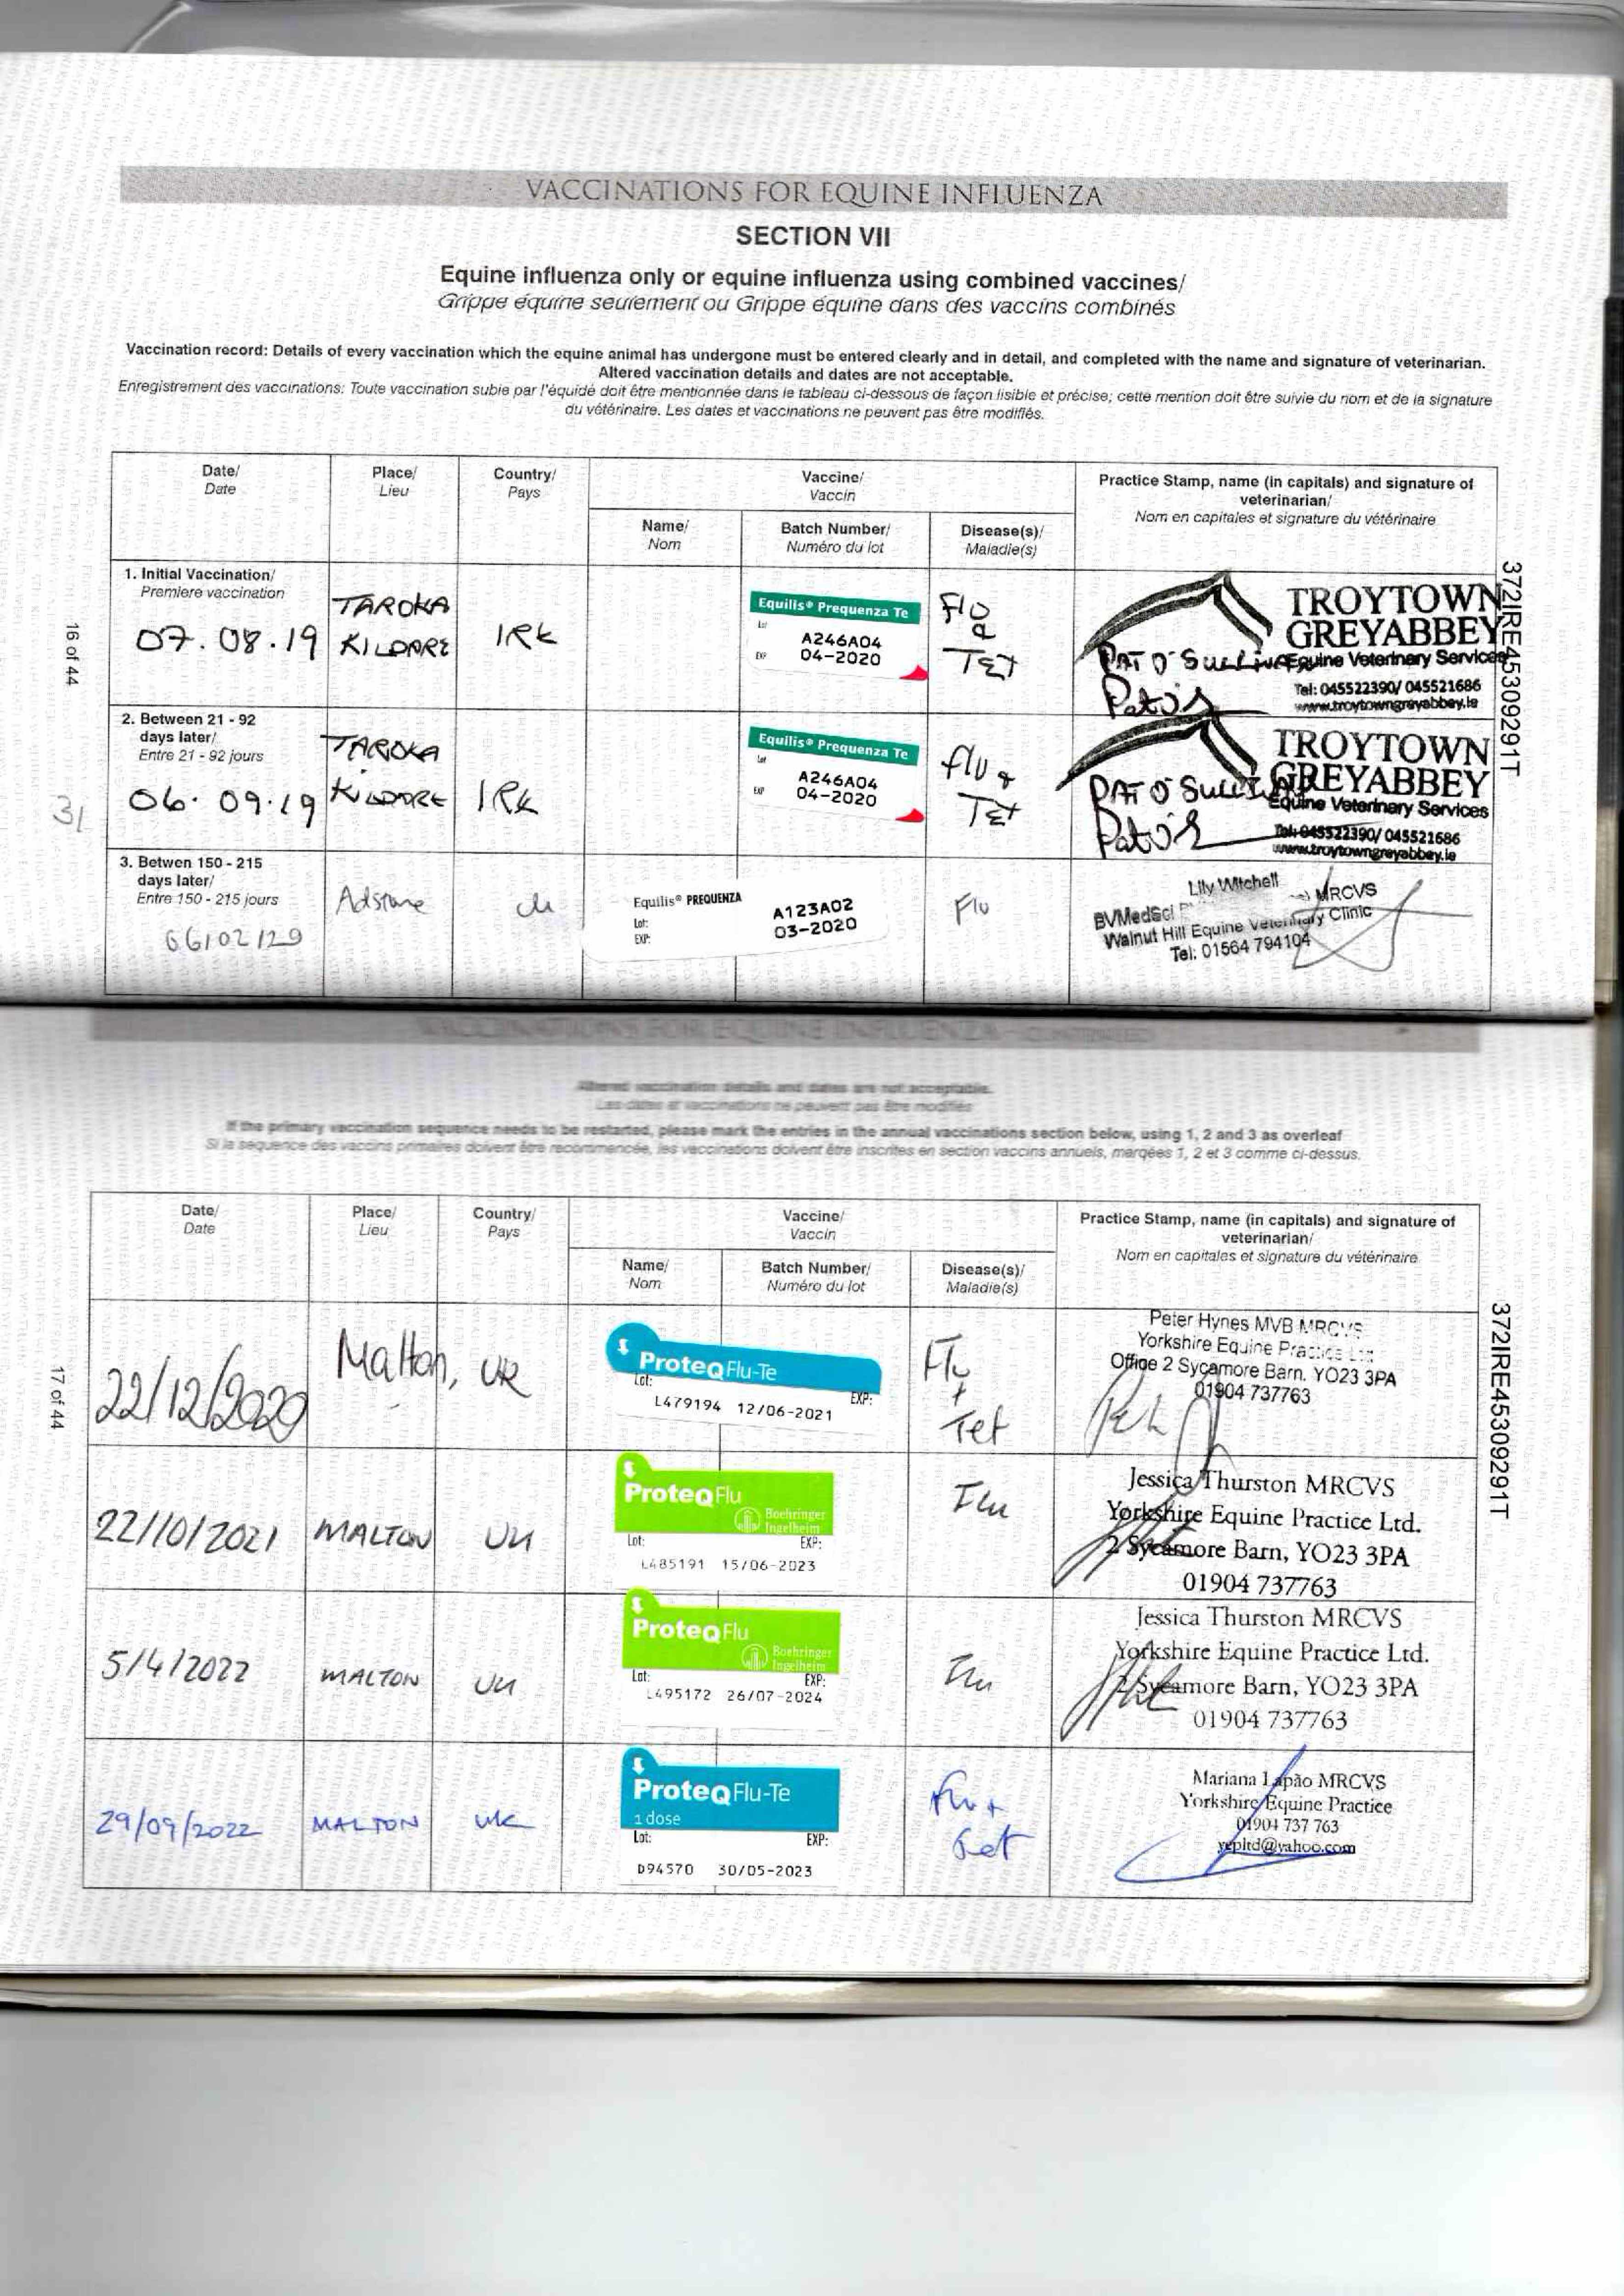 VACCINATIONS FOR EQUINE INFLUENZA
SECTION VII
Equine influenza only or equine influenza using combined vaccines/
Grippe équine seulement ou Grippe équine dans des vaccins combinés
Vaccination record: Details of every vaccination which the equine animal has undergone must be entered clearly and in detail, and completed with the name and signature of veterinarian.
Altered vaccination details and dates are not acceptable.
Enregistrement des vaccinations: Toute vaccination subie par l'équidé doit être mentionnée dans le tableau ci-dessous de façon lisible et précise; cette mention doit être suivie du nom et de la signature
du vétérinaire. Les dates et vaccinations ne peuvent pas être modifiés.
Date/
Date
Place/
Lieu
Country/
Pays
Vaccine/
Vaccin
Name/
Nom
Batch Number/
Numéro du lot
Disease(s)/
Maladie(s)
Practice Stamp, name (in capitals) and signature of
veterinarian/
Nom en capitales et signature du vétérinaire
1. Initial Vaccination/
Premiere vaccination
07.08.19
TAROKA
KILDARE
IRE
Equilis® Prequenza Te
Lot
A246A04
EXP 04-2020
Flu
&
TET
PAT O'SULLIVAN
TROYTOWN
GREYABBEY
Equine Veterinary Services
Tel: 045522390/ 045521686
www.troytowngreyabbey.ie
2. Between 21 - 92
days later/
Entre 21 - 92 jours
06.09.19
TAROKA
KILDARE
IRE
Equilis® Prequenza Te
Lot
A246A04
EXP 04-2020
flu &
TET
PAT O'SULLIVAN
TROYTOWN
GREYABBEY
Equine Veterinary Services
Tel: 045522390/ 045521686
www.troytowngreyabbey.ie
3. Betwen 150 - 215
days later/
Entre 150 - 215 jours
Adstone
Equilis® PREQUENZA
Lot: A123A02
EXP: 03-2020
Flu
Lily Witchell
BVMedSci MRCVS
Walnut Hill Equine Veterinary Clinic
Tel: 01564 794104
16 of 44
31
372IRE45309291T
VACCINATIONS FOR EQUINE INFLUENZA
Altered vaccination details and dates are not acceptable.
Les dates et vaccinations ne peuvent pas être modifiés
If the primary vaccination sequence needs to be restarted, please mark the entries in the annual vaccinations section below, using 1, 2 and 3 as overleaf
Si la séquence des vaccins primaires doivent être recommencée, les veccinations doivent être inscrites en section vaccins annuels, marqées 1, 2 et 3 comme ci-dessus.
Date/
Date
Place/
Lieu
Country/
Pays
Vaccine/
Vaccin
Name/
Nom
Batch Number/
Numéro du lot
Disease(s)/
Maladie(s)
Practice Stamp, name (in capitals) and signature of
veterinarian/
Nom en capitales et signature du vétérinaire
22/12/2020
Malton,
UK
ProteqFlu-Te
Lot: EXP:
L479194 12/06-2021
Flu
+
Tet
Peter Hynes MVB MRCVS
Yorkshire Equine Practice Ltd
Office 2 Sycamore Barn. YO23 3PA
01904 737763
22/10/2021
MALTON
UK
ProteqFlu
Boehringer
Ingelheim
Lot: EXP:
L485191 15/06-2023
Flu
Jessica Thurston MRCVS
Yorkshire Equine Practice Ltd.
2 Sycamore Barn, YO23 3PA
01904 737763
5/4/2022
MALTON
UK
ProteqFlu
Boehringer
Ingelheim
Lot: EXP:
L495172 26/07-2024
Flu
Jessica Thurston MRCVS
Yorkshire Equine Practice Ltd.
2 Sycamore Barn, YO23 3PA
01904 737763
29/09/2022
MALTON
UK
ProteqFlu-Te
1 dose
Lot: EXP:
D94570 30/05-2023
Flu +
Tet
Mariana Lapão MRCVS
Yorkshire Equine Practice
01904 737 763
yepltd@yahoo.com
17 of 44
372IRE45309291T